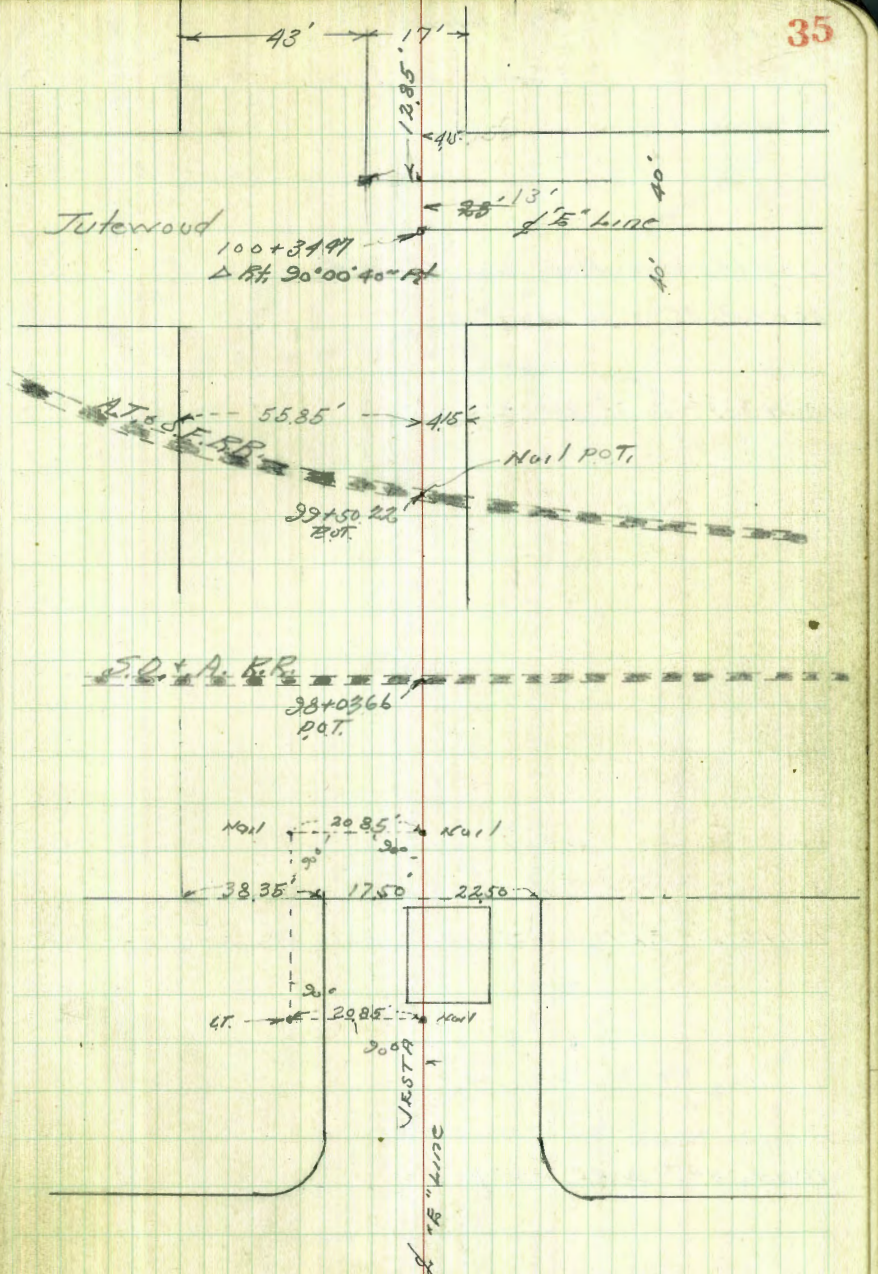 35
43' 17'
12.85'
4.15
40'
13'
Jutewood
℄ "E" Line
100+34.97
Δ Rt. 90°00'40" Rt
40'
A.T. & S.F. R.R.
55.85' 4.15'
Nail P.O.T.
99+50.22
P.O.T.
S.D. & A. R.R.
98+03.66
P.O.T.
Nail 20.85' Nail
90° 90°
38.35' 17.50 22.50
90°
20.85' Nail
90°
VESTA
℄ "E" LINE